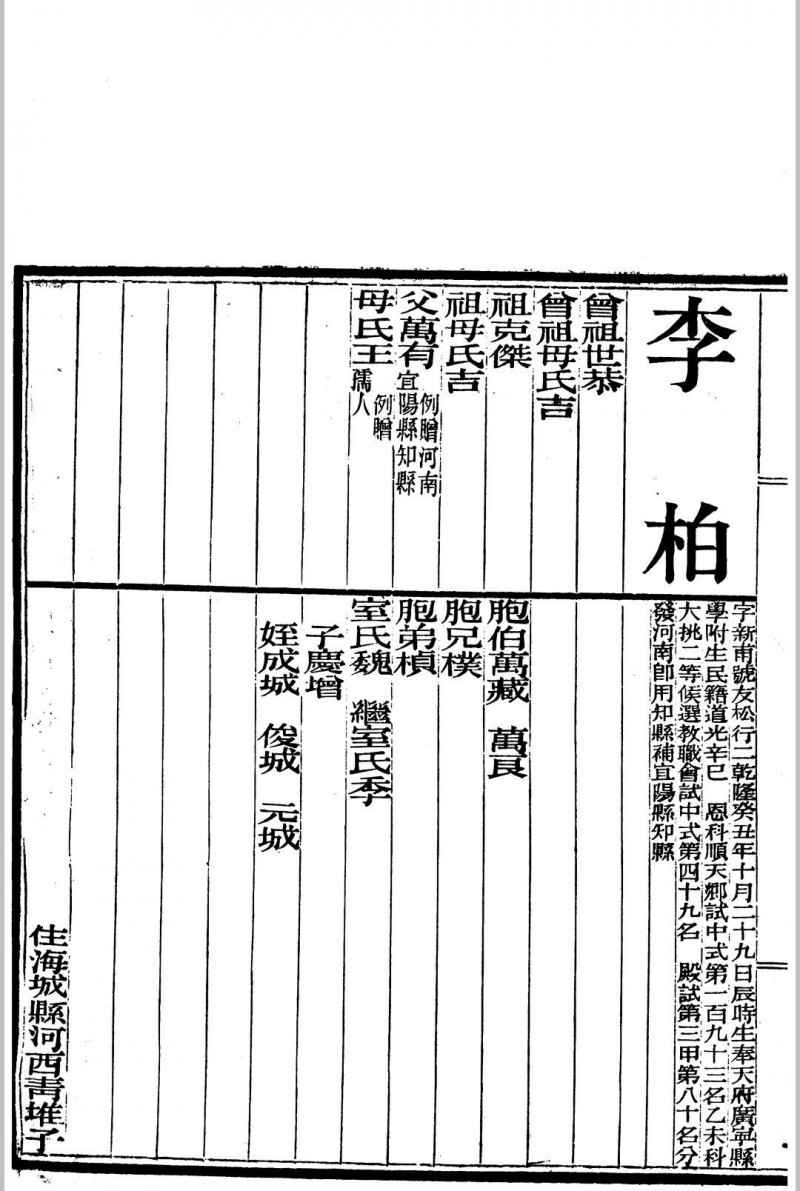 李柏
字新甫號友松行二乾隆癸丑年十月二十九日辰時生奉天府廣寧縣
學附生民籍道光辛巳　恩科順天鄉試中式第一百九十三名乙未科
大挑二等候選教職會試中式第四十九名　殿試第三甲第八十名分
發河南卽用知縣補宜陽縣知縣
曾祖世恭
曾祖母氏吉
祖克傑
祖母氏吉
父萬有例贈河南宜陽縣知縣
母氏王例贈孺人
胞伯萬藏　萬良
胞兄樸
胞弟楨
室氏魏　繼室氏季
子慶增
姪成城　俊城　元城
住海城縣河西靑堆子